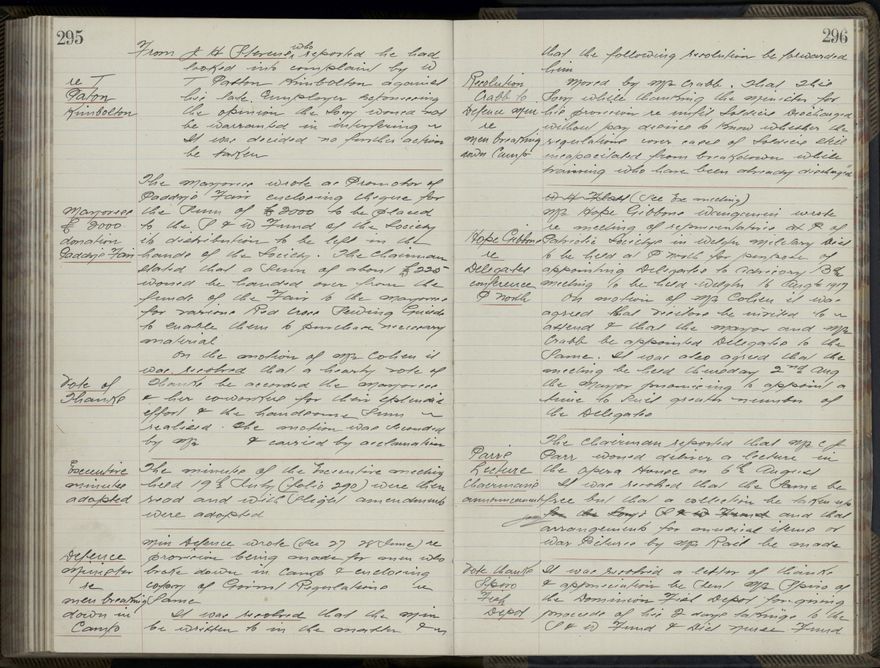 295
From J H Stevens, who reported he had
looked into complaint by W
re T
Paton
Kimbolton
T Patton Kimbolton against
his late Employer
the opinion the Socy would not
be warranted in interfering
It was decided no further action
be taken
The Mayoress wrote as Promotor of
Paddy's Fair enclosing cheque for
Mayoress
£ 2000
donation
Paddy's Fair
the Sum of £ 2000 to be placed
to the P & W Fund of the Society
its distribution to be left in the
hands of the Society. The Chairman
stated that a Sum of about £ 225
would be handed over from the
funds of the Fair to the Mayoress
for various Red Cross Sewing Guilds
to enable them to purchase necessary
material
On the motion of Mr Cohen it
was resolved that a hearty vote of
Vote of
Thanks
Thanks be accorded the Mayoress
& her coworkers for their splendid
effort & the handsome Sum
realised. The motion was seconded
by Mr & carried by acclamation
Executive
minutes
adopted
The minutes of the Executive meeting
held 19th July (folio 290) were then
read and with slight amendments
were adopted
Min Defence wrote (See 27 28 June) re
Defence
Minister
re
men breaking
down in
Camp
provision being made for men who
broke down in Camp & enclosing
copy of Regulations
Same
It was resolved that the Min
be written to in the matter &
296
that the following resolution be forwarded
him
Resolution
Crabb to
Defence Min
re
men breaking
down Camp
Moved by Mr Crabb. That this
Socy while thanking the Minister for
his provision re unfit Soldiers discharged
without pay desires to know whether the
regulations cover cases of Soldiers
incapacitated from breakdown while
training who have been already discharged
(See Exe meeting)
Mr Hope Gibbons Wanganui wrote
Hope Gibbons
re
Delegates
conference
P North
re meeting of representatives at P of
Patriotic Societys in Welgtn Military Dist
to be held at P North for purpose of
appointing Delegates to Advisory Bd
meeting to be held Welgtn 16 Augth 1917
On motion of Mr Cohen it was
agreed that
attend & that the Mayor and Mr
Crabb be appointed Delegates to the
Same. It was also agreed that the
meeting be held Thursday 2nd Aug
the Mayor promising to appoint a
time to suit greater number of
the Delegates
The Chairman reported that Mr C J
Parr's
Lecture
Chairmans
announcement
Parr would deliver a lecture in
the Opera House on 6th August
It was resolved that the Same be
free but that a collection be taken up
for the Socys P & W Fund and that
arrangements for musical items or
War Pictures by Mr be made
Vote thanks
Spiro
Fish
Depot
It was resolved a letter of thanks
& appreciation be sent Mr Spiro of
the Dominion Fish Depot for giving
proceeds of his 2 days takings to the
P & W Fund & Dist Nurse Fund